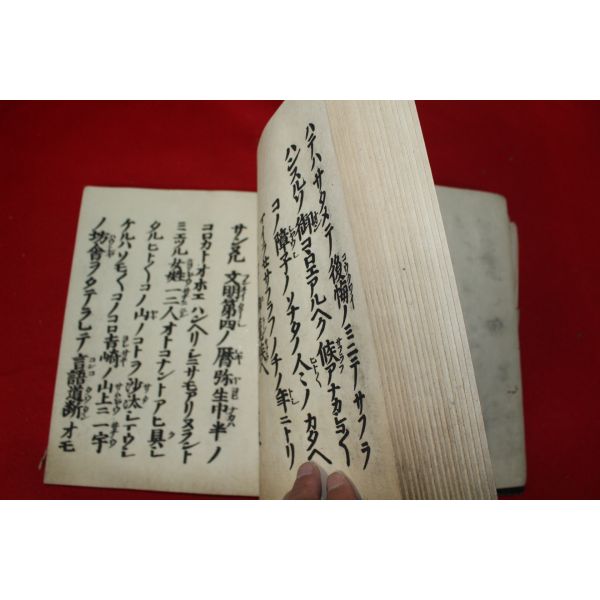 ハテハサタメテ後悔ノミニテサフラ
ハンスルソ御コヽロエアルヘク候アナカシコ〱
コノ障子ノソナタノ人々ノカタヘ
マイラセサフラフノチノ年ニトリ
サンヌル文明第四ノ暦弥生中半ノ
コロカトオホエハンヘリシニサモアリヌラント
ミエツル女姓一二人オトコナントアヒ具シ
タルヒト〱コノ山ノコトヲ沙汰シマウシ
ケルハソモ〱コノコロ吉崎ノ山上ニ一宇
ノ坊舎ヲタテラレテ言語道断オモ